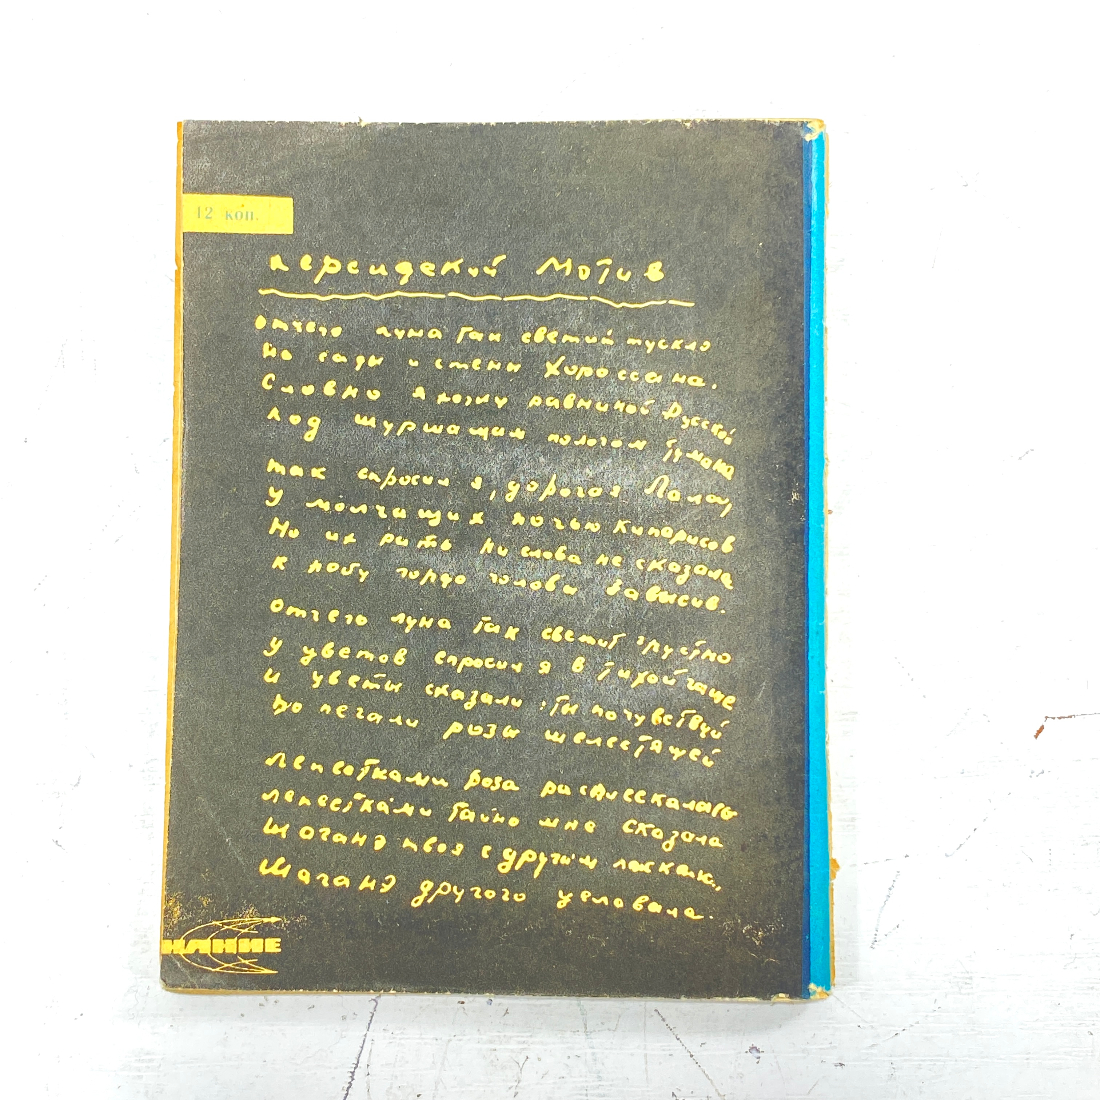 12 коп.
персидский мотив
Отчего луна так светит тускло
На сады и стены Хороссана.
Словно я хожу равниной Русской
Под шуршащим пологом тумана
Так спросил я, дорогая Лала,
У молчащих ночью Кипарисов
Но их рать ни слова не сказала
К небу гордо головы завысив.
Отчего луна так светит грустно
У цветов спросил я в тихой чаще
И цветы сказали: ты почувствуй
По печали розы шелестящей
Лепестками роза расплескалась
Лепестками тайно мне сказала
Шаганэ твоя с другим ласкалась,
Шаганэ другого целовала.
НАНИЕ